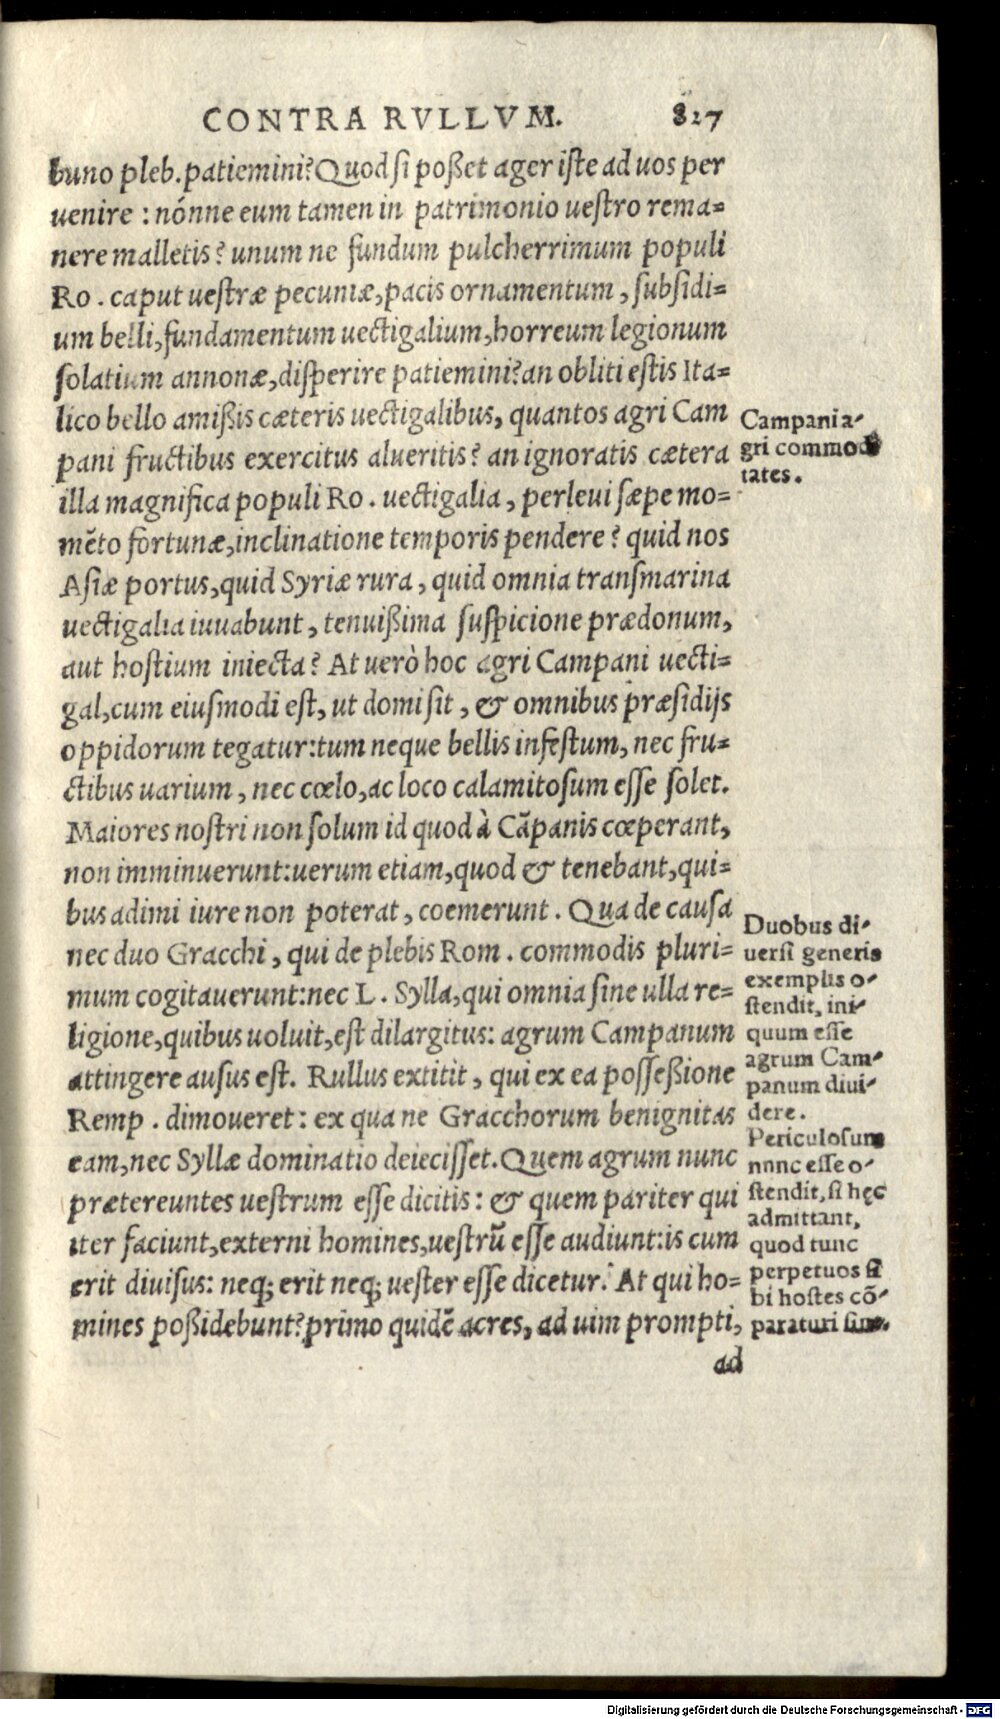 CONTRA RVLLVM. 827
buno pleb. patiemini? Quod si poßet ager iste ad uos per
uenire: nónne eum tamen in patrimonio uestro rema=
nere malletis? unum ne fundum pulcherrimum populi
Ro. caput uestræ pecuniæ, pacis ornamentum, subsidi=
um belli, fundamentum uectigalium, horreum legionum
solatium annonæ, disperire patiemini? an obliti estis Ita=
lico bello amißis cæteris uectigalibus, quantos agri Cam
pani fructibus exercitus alueritis? an ignoratis cætera
illa magnifica populi Ro. uectigalia, perleui sæpe mo=
mẽto fortunæ, inclinatione temporis pendere? quid nos
Asiæ portus, quid Syriæ rura, quid omnia transmarina
uectigalia iuuabunt, tenuißima suspicione prædonum,
aut hostium iniecta? At uerò hoc agri Campani uecti=
gal, cum eiusmodi est, ut domi sit, & omnibus præsidijs
oppidorum tegatur: tum neque bellis infestum, nec fru=
ctibus uarium, nec cœlo, ac loco calamitosum esse solet.
Maiores nostri non solum id quod à Cãpanis cœperant,
non imminuerunt: uerum etiam, quod & tenebant, qui=
bus adimi iure non poterat, coemerunt. Qua de causa
nec duo Gracchi, qui de plebis Rom. commodis pluri=
mum cogitauerunt: nec L. Sylla, qui omnia sine ulla re=
ligione, quibus uoluit, est dilargitus: agrum Campanum
attingere ausus est. Rullus extitit, qui ex ea posseßione
Remp. dimoueret: ex qua ne Gracchorum benignitas
eam, nec Syllæ dominatio deiecisset. Quem agrum nunc
prætereuntes uestrum esse dicitis: & quem pariter qui
iter faciunt, externi homines, uestrũ esse audiunt: is cum
erit diuisus: neq; erit neq; uester esse dicetur. At qui ho=
mines poßidebunt? primo quidẽ acres, ad uim prompti,
ad
Campani a-
gri commodi
tates.
Duobus di-
uersi generis
exemplis o-
stendit, ini-
quum esse
agrum Cam-
panum diui-
dere.
Periculosum
nunc esse o-
stendit, si hęc
admittant,
quod tunc
perpetuos si
bi hostes cõ-
paraturi sint.
Digitalisierung gefördert durch die Deutsche Forschungsgemeinschaft - DFG